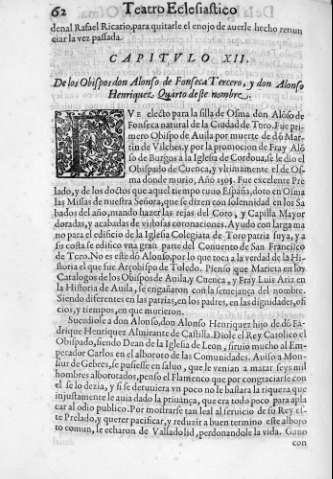 62 Teatro Eclesiastico
denal Rafael Ricario, para quitarle el enojo de auerle hecho renun
ciar la vez passada.
CAPITVLO XII.
De los Obispos don Alonso de Fonseca Tercero, y don Alonso
Henriquez Quarto deste nombre.
FVE electo para la silla de Osma don Alõso de
Fonseca natural de la Ciudad de Toro. Fue pri
mero Obispo de Auila por muerte de dõ Mar
tin de Vilches, y por la promocion de Fray Alõ
so de Burgos a la Iglesia de Cordoua, se le dio el
Obispado de Cuenca, y vltimamente el de Os-
ma donde murio, Año 1505. Fue excelente Pre
lado, y de los doctos que aquel tiempo tuuo España, doto en Osma
las Missas de nuestra Señora, que se dizen con solennidad en los Sa
bados del año, mando hazer las rejas del Coro, y Capilla Mayor
doradas, y acabadas de vistosas coronaciones. Ayudo con larga ma
no para el edificio de la Iglesia Colegiata de Toro patria suya, y a
su costa se edifico vna gran parte del Conuento de San Francisco
de Toro. No es este dõ Alonso, por lo que toca a la verdad de la His
toria el que fue Arçobispo de Toledo. Piensо que Marieta en los
Catalogos de los Obispos de Auila, y Cuenca, y Fray Luis Ariz en
la Historia de Auila, se engañaron cõ la semejança del nombre.
Siendo diferentes en las patrias, en los padres, en las dignidades, ofi
cios, y tiempos, en que murieron.
Sucediole a don Alonso, don Alonso Henriquez hijo de dõ Fa-
drique Henriquez Almirante de Castilla. Diole el Rey Catolico el
Obispado, siendo Dean de la Iglesia de Leon, siruio mucho al Em-
perador Carlos en el alboroto de las Comunidades. Auiso a Mon-
sur de Gebres, se pusiesse en saluo, que le venian a matar seys mil
hombres alborotados, penso el Flamenco que por congraciarse con
el se lo dezia, y si se detuuiera vn poco no le bastara la riqueza que
injustamente le auia dado la priuança, que era todo poco para apla
car al odio publico. Por mostrarse tan leal al seruicio de su Rey es-
te Prelado, y querer pacificar, y reduzir a buen termino este alboro
to comun, le echaron de Valladolid, perdonandole la vida. Gano
con